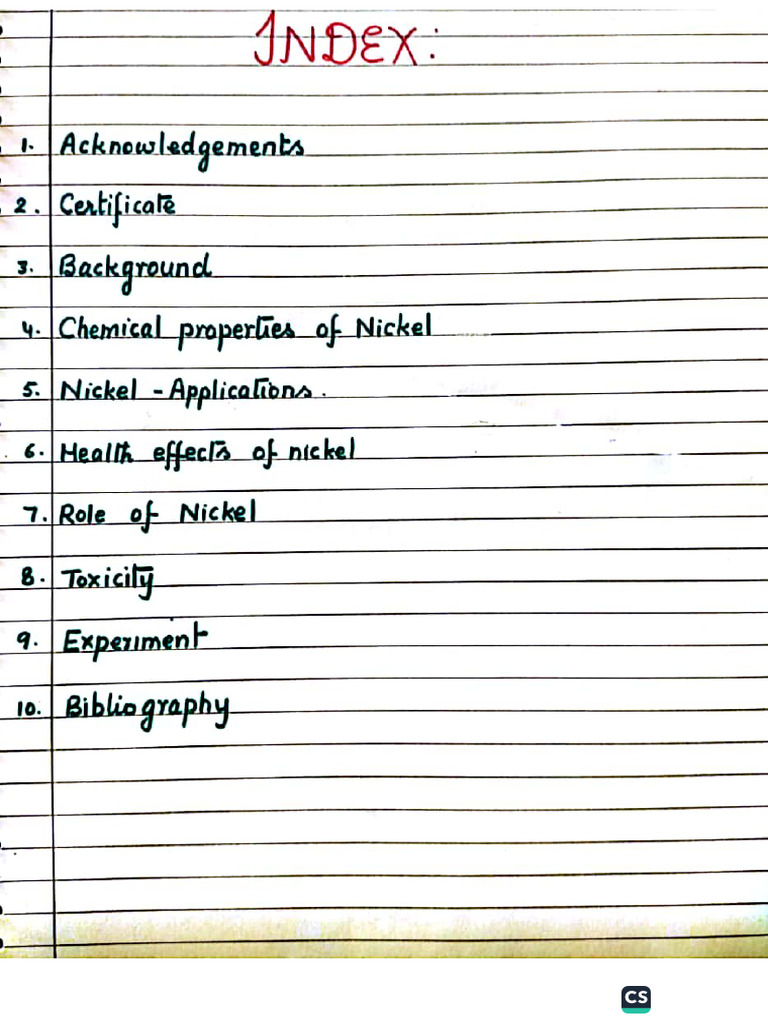 INDEX:
1. Acknowledgements
2. Certificate
3. Background
4. Chemical properties of Nickel
5. Nickel - Applications.
6. Health effects of nickel
7. Role of Nickel
8. Toxicity
9. Experiment
10. Bibliography
CS